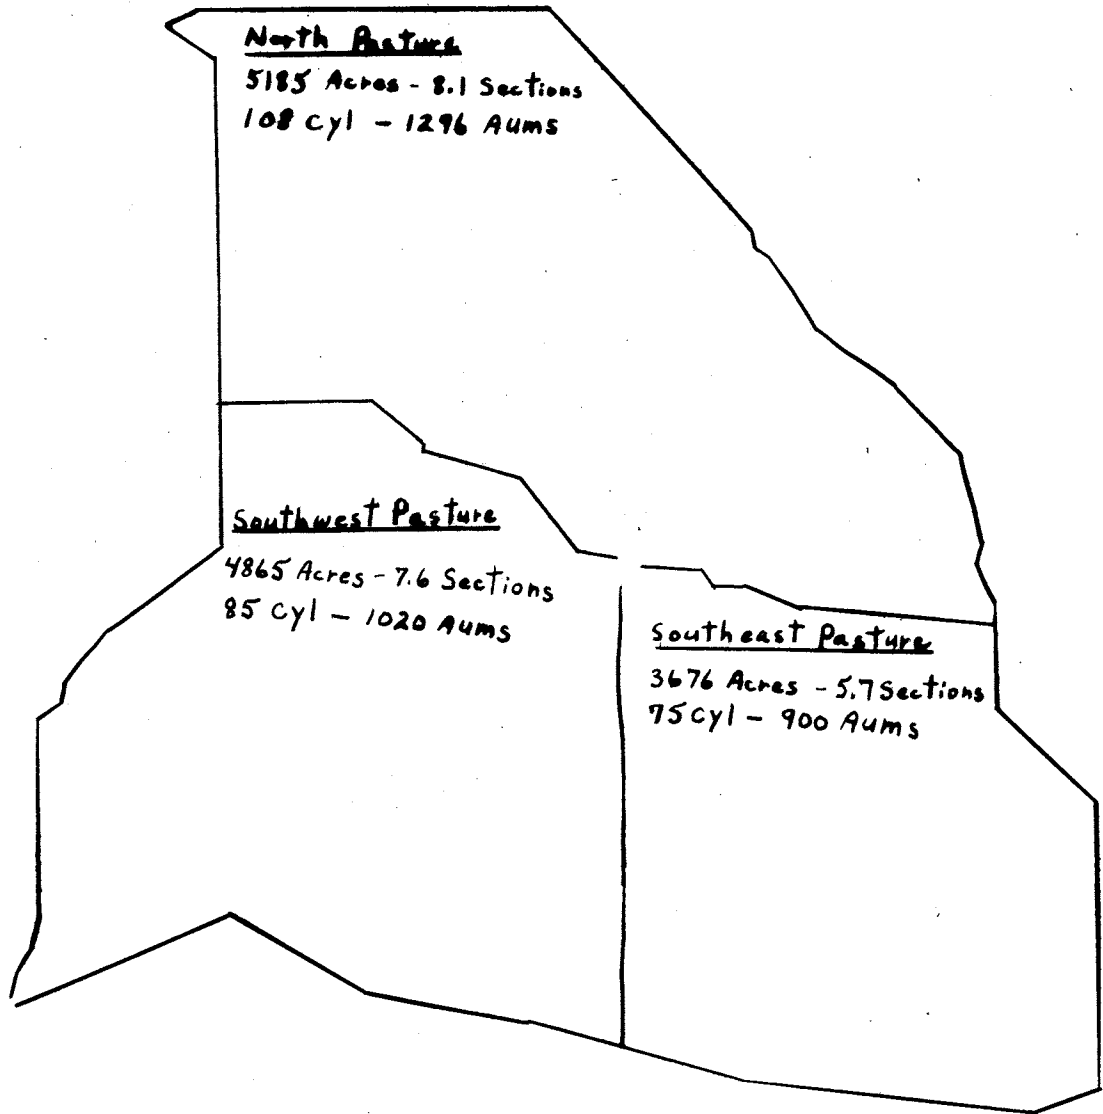 North Pasture
5185 Acres - 8.1 Sections
108 Cyl - 1296 Aums
Southwest Pasture
4865 Acres - 7.6 Sections
85 Cyl - 1020 Aums
Southeast Pasture
3676 Acres - 5.7 Sections
75 Cyl - 900 Aums